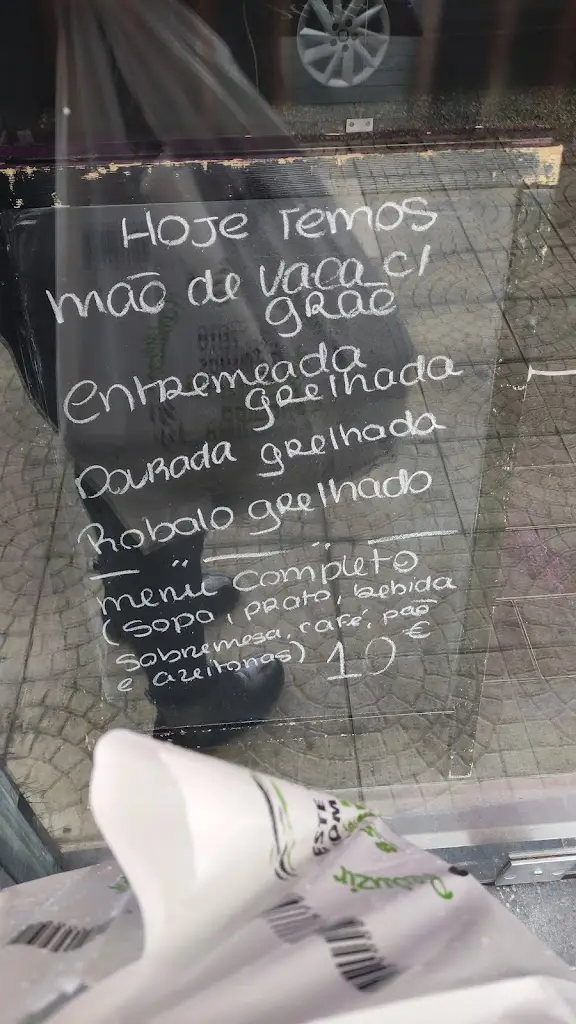 Hoje temos
mão de vaca c/
grão
entremeada
grelhada
Dourada grelhada
Robalo grelhado
menu completo
(sopa, prato, bebida
sobremesa, café, pão
e azeitonas) 10 €